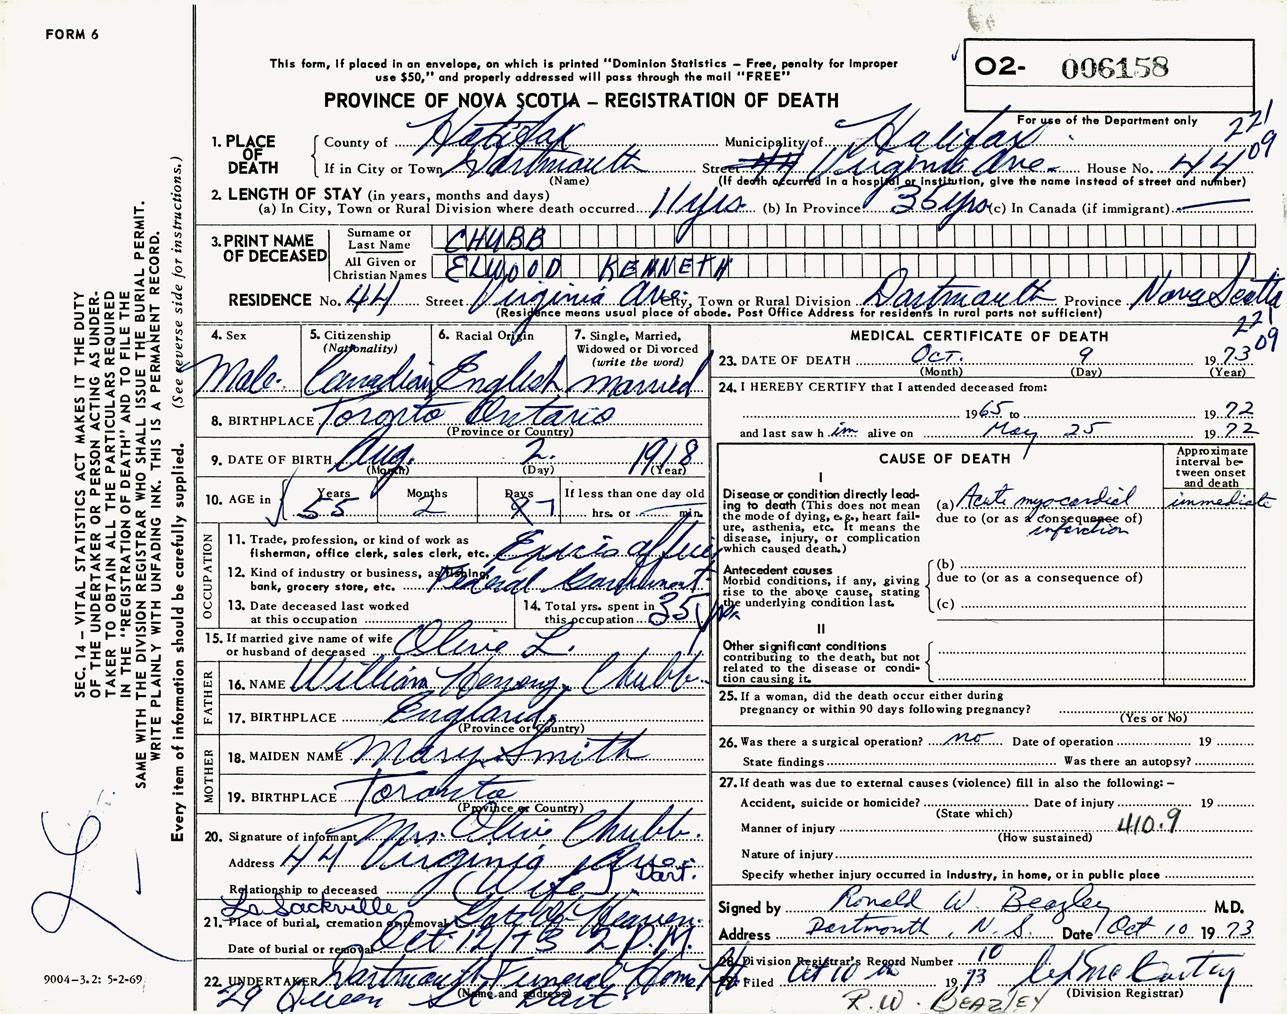 FORM 6
This form, if placed in an envelope, on which is printed "Dominion Statistics – Free, penalty for improper
use $50," and properly addressed will pass through the mail "FREE"
PROVINCE OF NOVA SCOTIA – REGISTRATION OF DEATH
O2- 006158
For use of the Department only
221
09
1. PLACE OF DEATH
County of Halifax Municipality of Halifax
If in City or Town Dartmouth Street 44 Virginia Ave. House No. 44
(Name) (If death occurred in a hospital or institution, give the name instead of street and number)
2. LENGTH OF STAY (in years, months and days)
(a) In City, Town or Rural Division where death occurred 11 yrs (b) In Province 35 yrs (c) In Canada (if immigrant) —
3. PRINT NAME OF DECEASED
Surname or Last Name CHUBB
All Given or Christian Names ELWOOD KENNETH
RESIDENCE No. 44 Street Virginia Ave. City, Town or Rural Division Dartmouth Province Nova Scotia
(Residence means usual place of abode. Post Office Address for residents in rural parts not sufficient)
221
09
4. Sex Male.
5. Citizenship (Nationality) Canadian
6. Racial Origin English
7. Single, Married, Widowed or Divorced (write the word) married
8. BIRTHPLACE Toronto Ontario
(Province or Country)
9. DATE OF BIRTH Aug. 2. 1918
(Month) (Day) (Year)
10. AGE in Years 55 Months 2 Days 7 If less than one day old
hrs. or min.
OCCUPATION
11. Trade, profession, or kind of work as
fisherman, office clerk, sales clerk, etc. officer
12. Kind of industry or business, as fishing,
bank, grocery store, etc. Federal Government.
13. Date deceased last worked
at this occupation
14. Total yrs. spent in
this occupation 35 yrs
15. If married give name of wife
or husband of deceased Olive L.
FATHER
16. NAME William Henry Chubb.
17. BIRTHPLACE England.
(Province or Country)
MOTHER
18. MAIDEN NAME Mary Smith
19. BIRTHPLACE Toronto
(Province or Country)
20. Signature of informant Mrs. Olive Chubb.
Address 44 Virginia Ave. Dart.
Relationship to deceased (Wife)
Lr Sackville
21. Place of burial, cremation or removal Heaven.
Date of burial or removal Oct 12/73 2 P.M.
22. UNDERTAKER Dartmouth Funeral Home Ltd
(Name and address)
29 Queen St Dart
MEDICAL CERTIFICATE OF DEATH
23. DATE OF DEATH Oct. 9 1973
(Month) (Day) (Year)
24. I HEREBY CERTIFY that I attended deceased from:
1965 to 1972
and last saw h im alive on May 25 1972
CAUSE OF DEATH
Approximate interval between onset and death
I
Disease or condition directly lead-
ing to death (This does not mean
the mode of dying, e.g., heart fail-
ure, asthenia, etc. It means the
disease, injury, or complication
which caused death.)
(a) Acute myocardial immediate
due to (or as a consequence of)
infarction
Antecedent causes
Morbid conditions, if any, giving
rise to the above cause, stating
the underlying condition last.
(b)
due to (or as a consequence of)
(c)
II
Other significant conditions
contributing to the death, but not
related to the disease or condi-
tion causing it.
25. If a woman, did the death occur either during
pregnancy or within 90 days following pregnancy?
(Yes or No)
26. Was there a surgical operation? no Date of operation 19
State findings Was there an autopsy?
27. If death was due to external causes (violence) fill in also the following: –
Accident, suicide or homicide? Date of injury 19
(State which)
Manner of injury 410.9
(How sustained)
Nature of injury
Specify whether injury occurred in industry, in home, or in public place
Signed by Ronald W. Beazley M.D.
Address Dartmouth, N.S. Date Oct 10 1973
28. Division Registrar's Record Number 10
29. Filed Oct 10 1973
(Division Registrar)
R.W. BEAZLEY
SEC. 14 – VITAL STATISTICS ACT MAKES IT THE DUTY
OF THE UNDERTAKER OR PERSON ACTING AS UNDER-
TAKER TO OBTAIN ALL THE PARTICULARS REQUIRED
IN THE "REGISTRATION OF DEATH" AND TO FILE THE
SAME WITH THE DIVISION REGISTRAR WHO SHALL ISSUE THE BURIAL PERMIT.
WRITE PLAINLY WITH UNFADING INK. THIS IS A PERMANENT RECORD.
Every item of information should be carefully supplied. (See reverse side for instructions.)
9004–3.2: 5-2-69